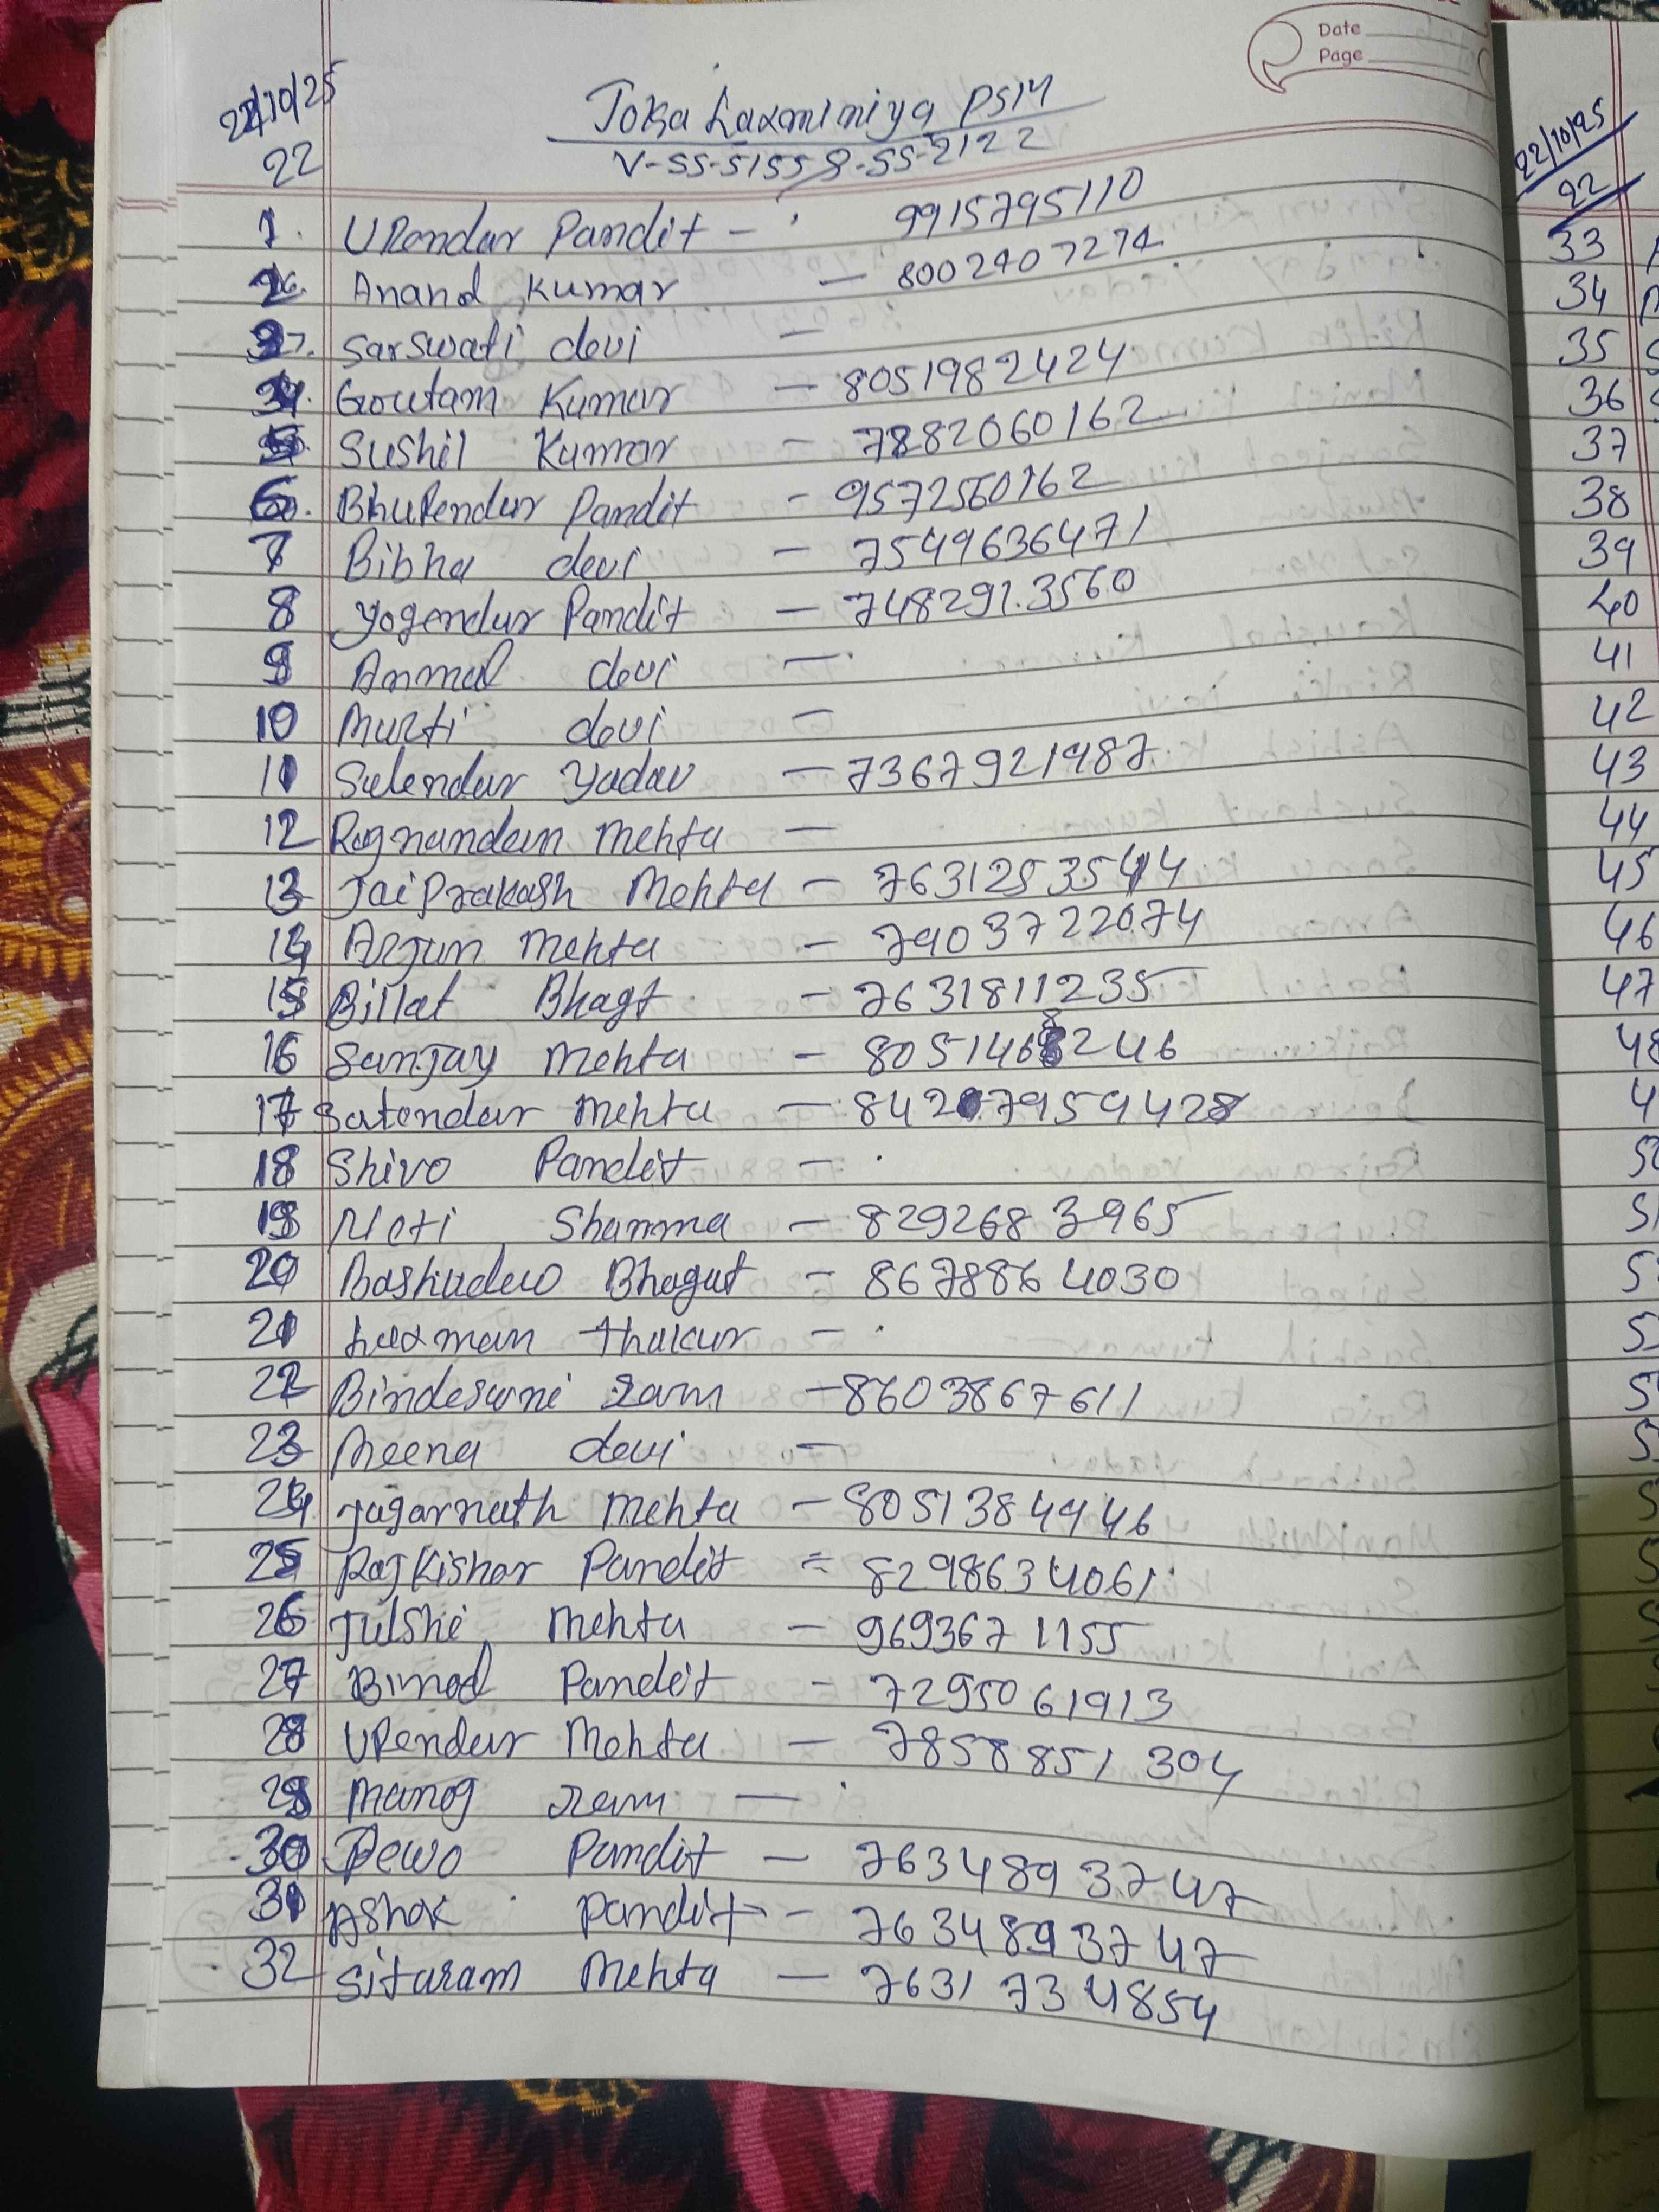 Date
Page
22/10/25
22
Joka Laxmiminiya PSM
V-SS-5155 S-SS-2122
1. UPendar Pandit - 9915795110
2. Anand Kumar - 8002407274
3. Sarswati devi -
4. Goutam Kumar - 8051982424
5. Sushil Kumar - 7882060162
6. BhuPendar Pandit - 9572560162
7 Bibha devi - 7549636471
8 yogendar Pandit - 7482913560
9 Anmol devi -
10 Murti devi -
11 Sulendar yadav - 7367921987
12 Ragnandan Mehta -
13 JaiPrakash Mehta - 7631253544
14 Arjun Mehta - 7903722074
15 Billat Bhagt - 7631811235
16 Sanjay Mehta - 8051468246
17 Satendar Mehta - 84207959428
18 Shivo Pandit -
19 Moti Sharma - 8292683965
20 Bashudew Bhagat - 8678864030
21 Laxman thakur -
22 Bindeswri ram - 8603867611
23 Meena devi -
24 Jagarnath Mehta - 8051384946
25 RajKishor Pandit = 8298634061
26 Tulshi Mehta - 9693671155
27 Binod Pandit - 7295061913
28 UPendar Mehta - 7858851304
29 Manog ram -
30 Dewo Pandit - 7634893747
31 Ashok Pandit - 7634893747
32 Sitaram Mehta - 7631734854
22/10/25
22
33
34
35
36
37
38
39
40
41
42
43
44
45
46
47
48